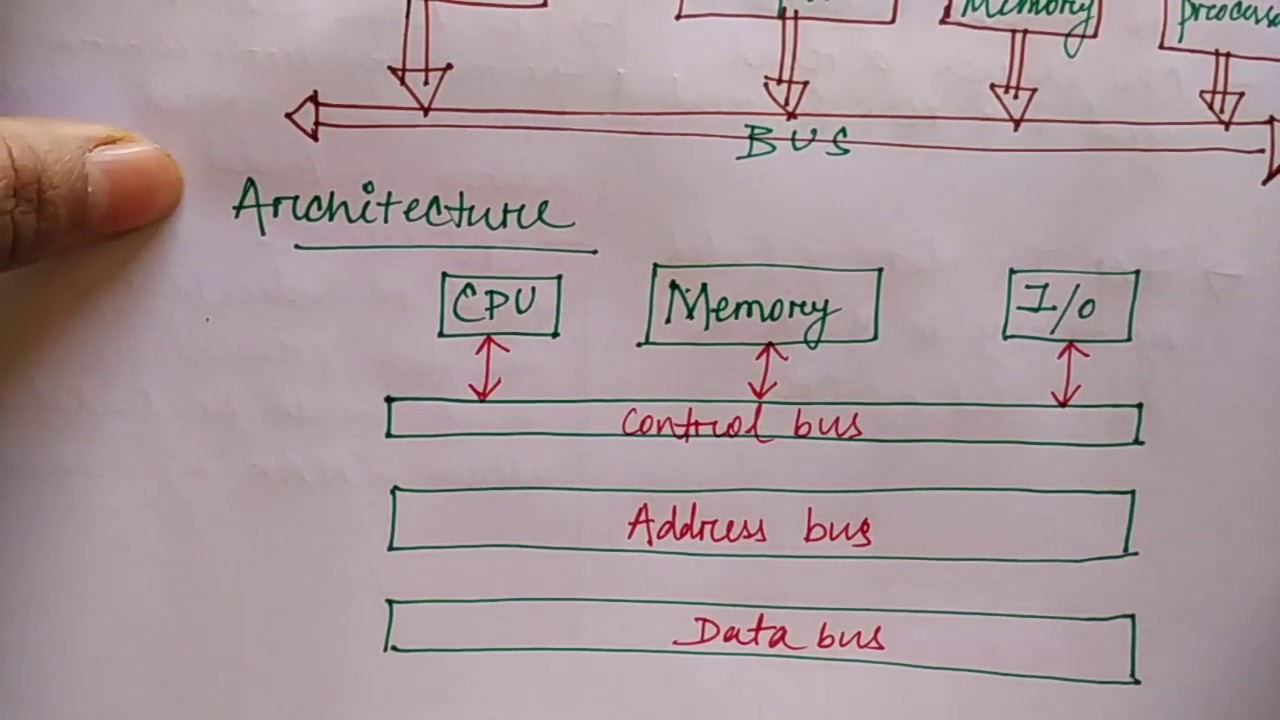 Memory
BUS
Architecture
CPU Memory I/O
Control bus
Address bus
Data bus